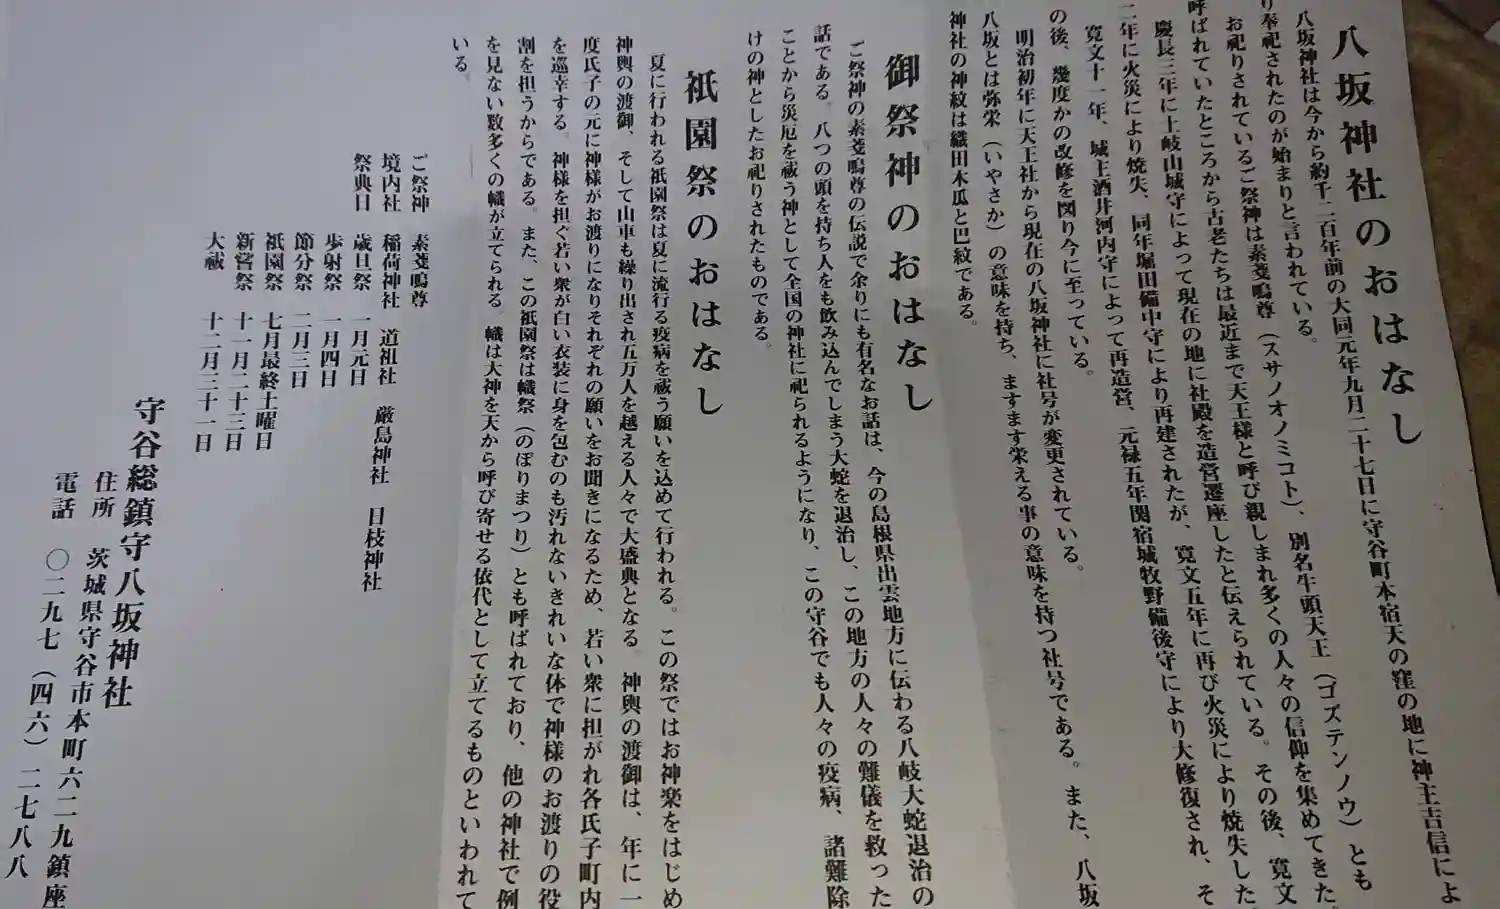 八坂神社のおはなし
八坂神社は今から約千二百年前の大同元年九月二十七日に守谷町本宿天の窪の地に神主吉信によ
り奉祀されたのが始まりと言われている。
お祀りされているご祭神は素戔嗚尊（スサノオノミコト）、別名牛頭天王（ゴズテンノウ）とも
呼ばれていたところから古老たちは最近まで天王様と呼び親しまれ多くの人々の信仰を集めてきた。
慶長三年に土岐山城守によって現在の地に社殿を造営遷座したと伝えられている。その後、寛文
二年に火災により焼失、同年堀田備中守により再建されたが、寛文五年に再び火災により焼失した。
寛文十一年、城主酒井河内守によって再造営、元禄五年関宿城牧野備後守により大修復され、そ
の後、幾度かの改修を図り今に至っている。
明治初年に天王社から現在の八坂神社に社号が変更されている。
八坂とは弥栄（いやさか）の意味を持ち、ますます栄える事の意味を持つ社号である。また、八坂
神社の神紋は織田木瓜と巴紋である。
御祭神のおはなし
ご祭神の素戔嗚尊の伝説で余りにも有名なお話は、今の島根県出雲地方に伝わる八岐大蛇退治の
話である。八つの頭を持ち人をも飲み込んでしまう大蛇を退治し、この地方の人々の難儀を救った
ことから災厄を祓う神として全国の神社に祀られるようになり、この守谷でも人々の疫病、諸難除
けの神としたお祀りされたものである。
祇園祭のおはなし
夏に行われる祇園祭は夏に流行る疫病を祓う願いを込めて行われる。この祭ではお神楽をはじめ
神輿の渡御、そして山車も繰り出され五万人を越える人々で大盛典となる。神輿の渡御は、年に一
度氏子の元に神様がお渡りになりそれぞれの願いをお聞きになるため、若い衆に担がれ各氏子町内
を巡幸する。神様を担ぐ若い衆が白い衣装に身を包むのも汚れないきれいな体で神様のお渡りの役
割を担うからである。また、この祇園祭は幟祭（のぼりまつり）とも呼ばれており、他の神社で例
を見ない数多くの幟が立てられる。幟は大神を天から呼び寄せる依代として立てるものといわれて
いる。
ご祭神 素戔嗚尊
境内社 稲荷神社 道祖社 厳島神社 日枝神社
祭典日 歳旦祭 一月元日
歩射祭 一月四日
節分祭 二月三日
祇園祭 七月最終土曜日
新嘗祭 十一月二十三日
大祓 十二月三十一日
守谷総鎮守八坂神社
住所 茨城県守谷市本町六二九鎮座
電話 〇二九七（四六）二七八八